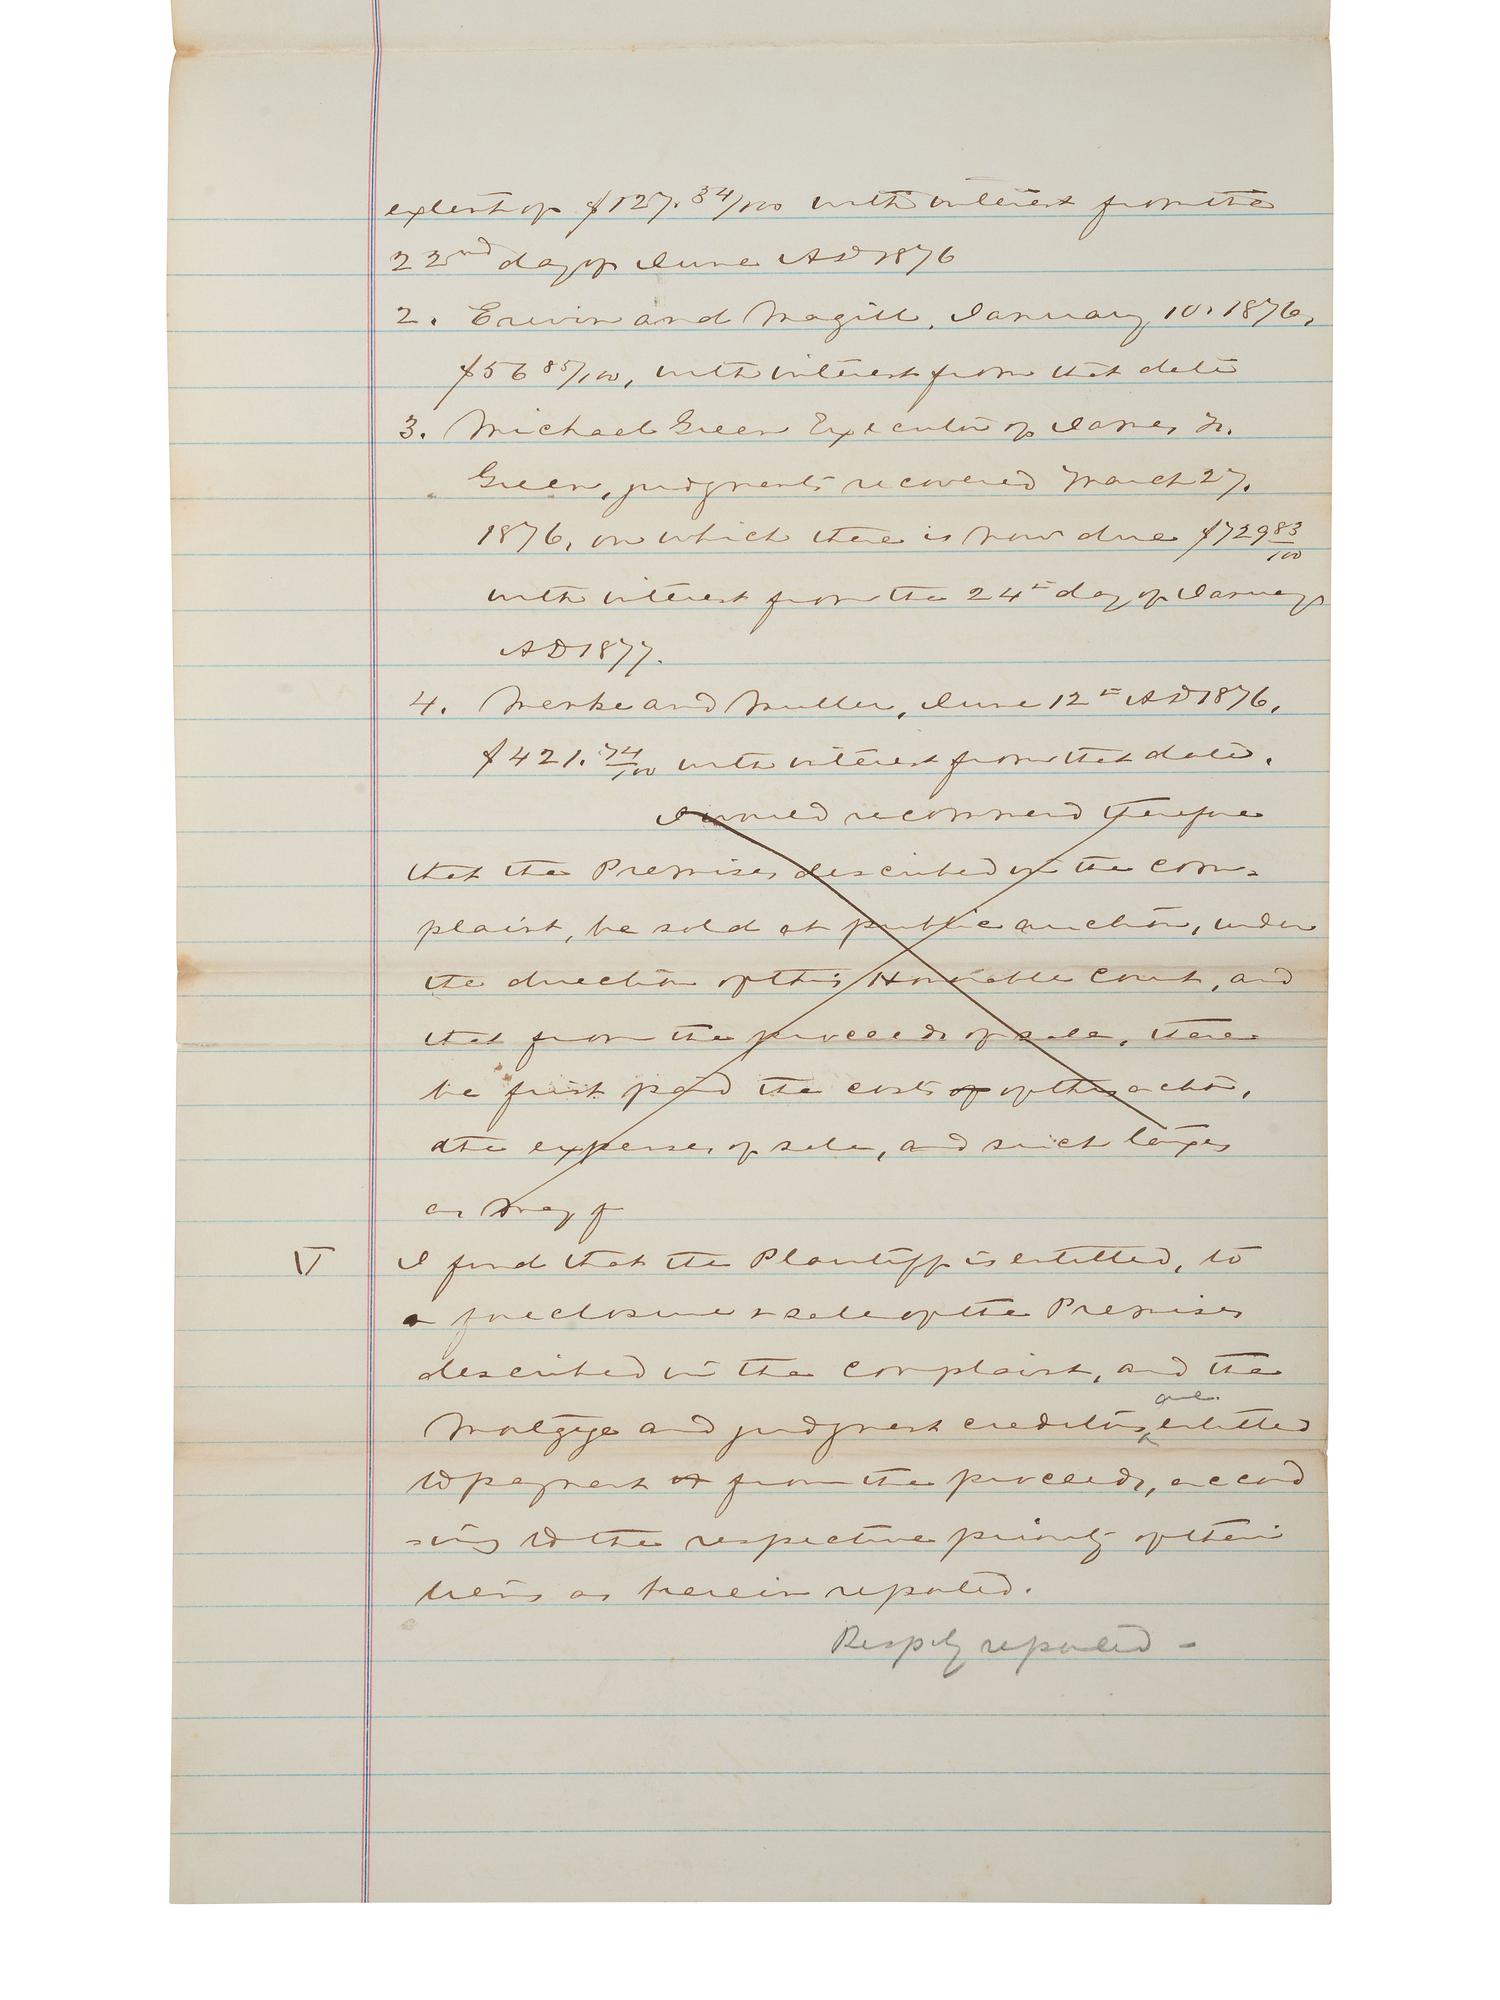 extent of $127.34/100 with interest from the
22nd day of June AD 1876
2. Erwin and Magill, January 10. 1876,
$56 85/100, with interest from that date
3. Michael Green Executor of James G.
Green, judgments recovered March 27.
1876, on which there is now due $729 83/100
with interest from the 24th day of January
AD 1877.
4. Menke and Muller, June 12th AD 1876,
$421. 74/100 with interest from that date.
I would recommend therefore
that the Premises described in the com=
plaint, be sold at public auction, under
the direction of this Honorable Court, and
that from the proceeds of sale, there
be first paid the costs of of this action,
the expenses of sale, and such taxes
as may f
V I find that the Plaintiff is entitled, to
a foreclosure & sale of the Premises
described in the Complaint, and the
are
Mortgage and judgment creditors, entitled
to payment of from the proceeds, accord
=ing to the respective priority of their
liens as herein reported.
Resply reported -